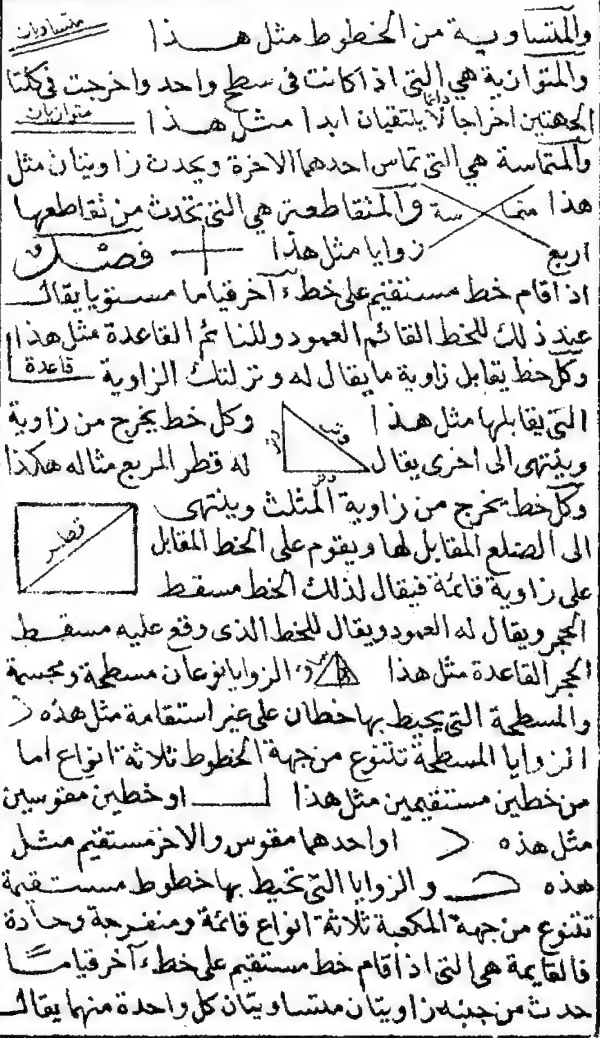 والمتساوية من الخطوط مثل هـــذا متساويات
والمتوازية هي التي اذا كانت في سطح واحد واخرجت في كلتا
الجهتين اخراجا دائما لا يلتقيان ابدا مثل هــذا متوازيات
والمتماسة هي التي تماس احدهما الاخرة ويحدث زاويتان مثل
هذا متما سة والمتقاطعة هي التي تحدث من تقاطعها
اربع زوايا مثل هذا فصــل
اذا قام خط مستقيم على خط ء آخر قياما مستويا يقال
عند ذلك للخط القائم العمود وللنائم القاعدة مثل هذا
وكل خط يقابل زاوية ما يقال له وتر لتلك الزاوية قاعدة
التي يقابلها مثل هــذا وتر وتر وتر وكل خط يخرج من زاوية
وينتهى الى اخرى يقال له قطر المربع مثاله هكذا
وكل خط يخرج من زاوية المثلث وينتهى
الى الضلع المقابل لها ويقوم على الخط المقابل قطر
على زاوية قائمة فيقال لذلك الخط مسقط
الحجر ويقال له العمود ويقال للخط الذى وقع عليه مسقط
الحجر القاعدة مثل هذا الزوايا نوعان مسطحة ومجسمة
والمسطحة التي يحيط بها خطان على غير استقامة مثل هذه
الزوايا المسطحة تتنوع من جهة الخطوط ثلاثة انواع اما
من خطين مستقيمين مثل هذا او خطين مقوسين
مثل هذه او احدهما مقوس والاخر مستقيم مثل
هذه والزوايا التي تحيط بها خطوط مستقيمة
تتنوع من جهة المكعبة ثلاثة انواع قائمة ومنفرجة وحادة
فالقايمة هي التي اذا قام خط مستقيم على خط ء آخر قياما
حدث من جنبه زاويتان متساويتان كل واحدة منهما يقال